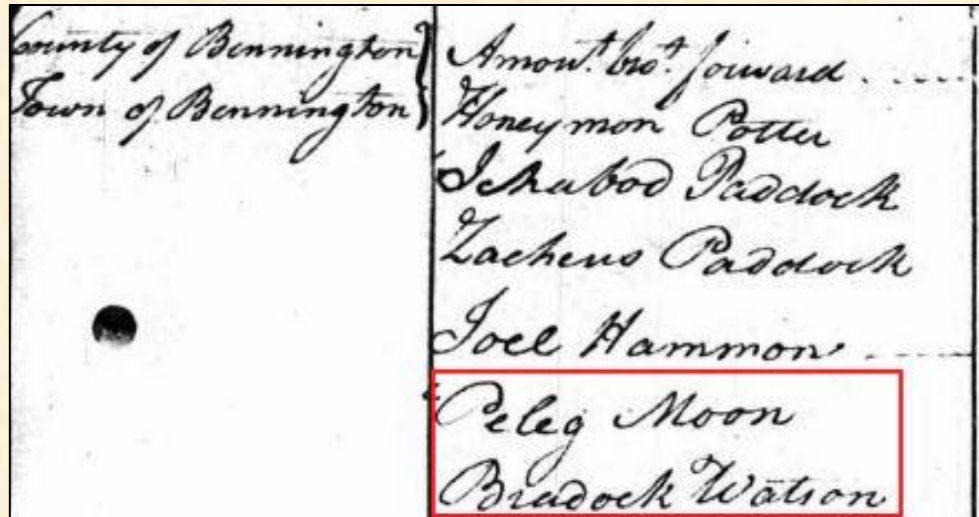 County of Bennington
Town of Bennington
Amou.t bro.t forward
Honeymon Potter
Ichabod Paddock
Zacheus Paddock
Joel Hammon
Peleg Moon
Bradock Watson